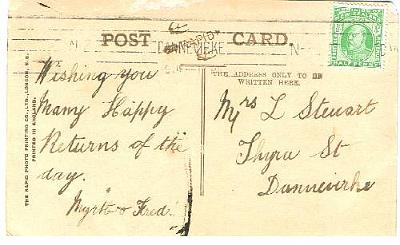 POST CARD.
DANNEVIRKE
THE ADDRESS ONLY TO BE
WRITTEN HERE.
Wishing you
Many Happy
Returns of the
day.
Myrtle & Fred.
Mrs L Steuart
Thyra St
Dannevirke
THE RAPID PHOTO PRINTING CO., LTD., LONDON, E.C.
PRINTED IN ENGLAND.
HALFPENNY